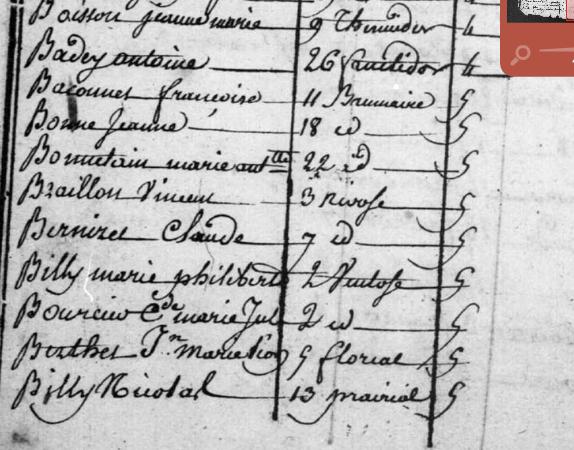 Boisson jeanne marie 9 Thermidor 4
Badey antoine 26 fructidor 4
Baconnet françoise 11 Brumaire 5
Bonne Jeanne 18 id 5
marie antte 22 id 5
Braillon Vincent 3 Nivose 5
Bernizet Claude 7 id 5
Billy marie philiberte 2 Ventose 5
Cde marie Jul 2 id 5
Berthet Jn marie 5 floreal 5
Billy Nicolas 13 prairial 5